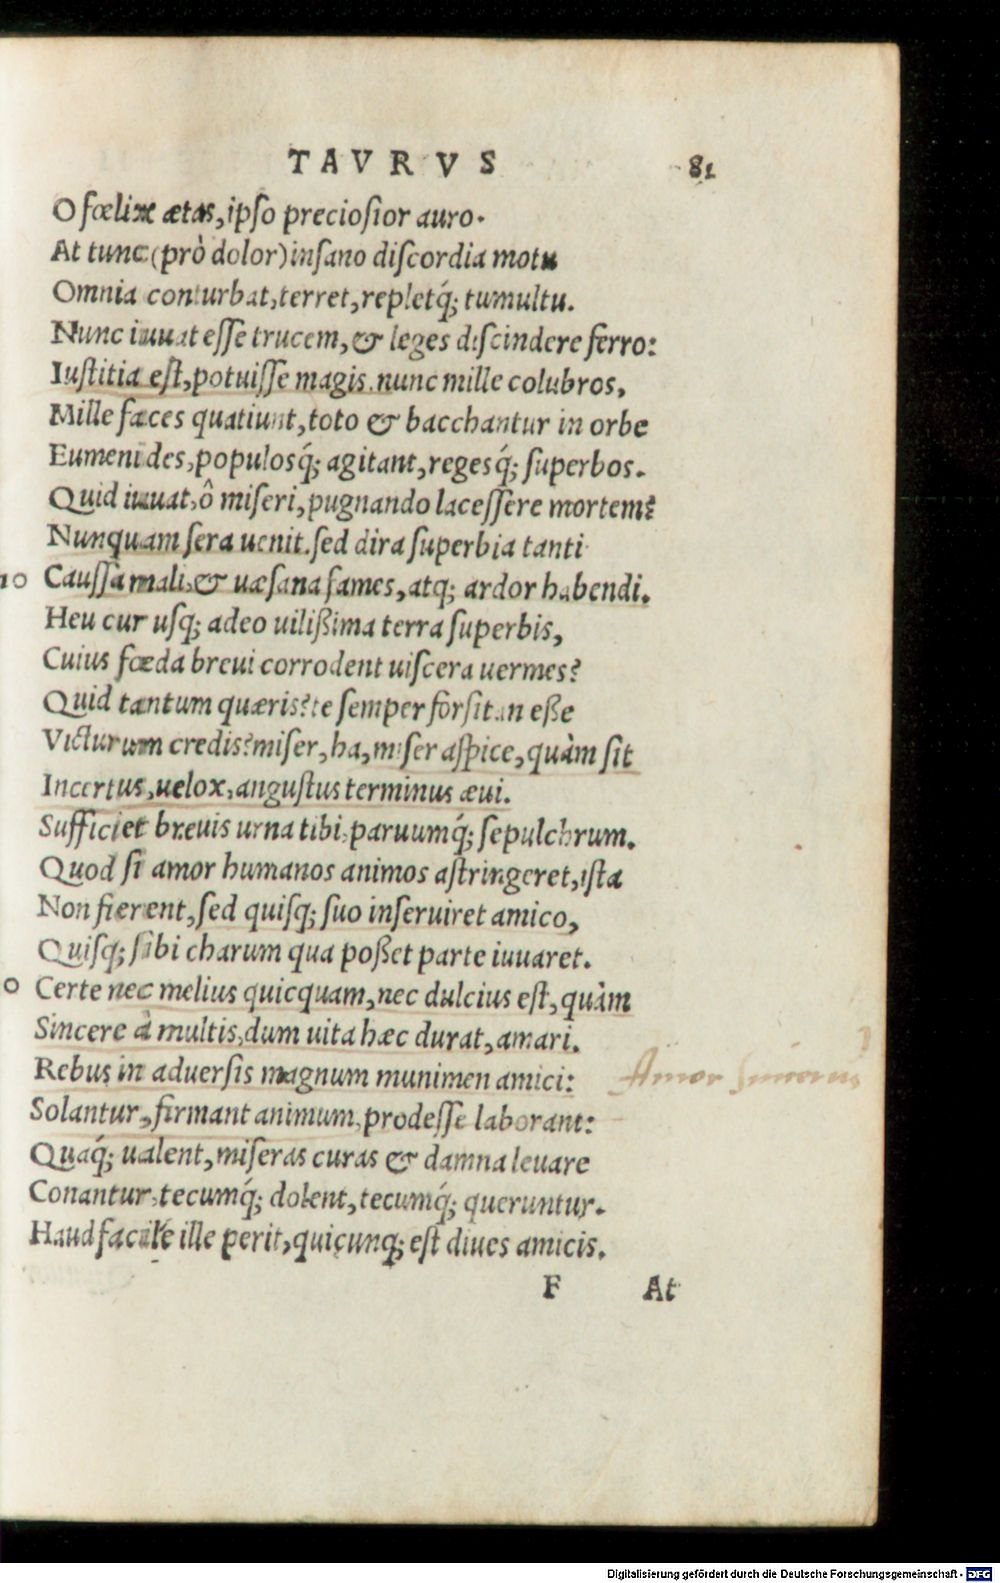 TAVRVS 81
O fœlix ætas, ipso preciosior auro.
At tunc (prò dolor) insano discordia motu
Omnia conturbat, terret, repletq́; tumultu.
Nunc iuuat esse trucem, & leges discindere ferro:
Iustitia est, potuisse magis. nunc mille colubros,
Mille faces quatiunt, toto & bacchantur in orbe
Eumenides, populosq́; agitant, regesq́; superbos.
Quid iuuat, ô miseri, pugnando lacessere mortem?
Nunquam sera uenit. sed dira superbia tanti
10 Caussa mali, & uæsana fames, atq; ardor habendi.
Heu cur usq; adeo uilißima terra superbis,
Cuius fœda breui corrodent uiscera uermes?
Quid tantum quæris? te semper forsitan eße
Victurum credis? miser, ha, miser aspice, quàm sit
Incertus, uelox, angustus terminus æui.
Sufficiet breuis urna tibi, paruumq́; sepulchrum.
Quod si amor humanos animos astringeret, ista
Non fierent, sed quisq; suo inseruiret amico,
Quisq; sibi charum qua poßet parte iuuaret.
0 Certe nec melius quicquam, nec dulcius est, quàm
Sincere à multis, dum uita hæc durat, amari.
Rebus in aduersis magnum munimen amici: Amor
Solantur, firmant animum, prodesse laborant:
Quaq́; ualent, miseras curas & damna leuare
Conantur, tecumq́; dolent, tecumq́; queruntur.
Haud facile ille perit, quicunq; est diues amicis.
F At
Digitalisierung gefördert durch die Deutsche Forschungsgemeinschaft - DFG